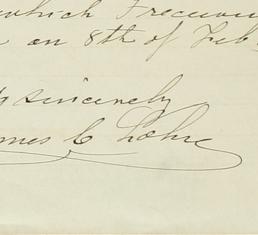 which I receiv
on 8th of Feb
sincerely
mes C Lohr